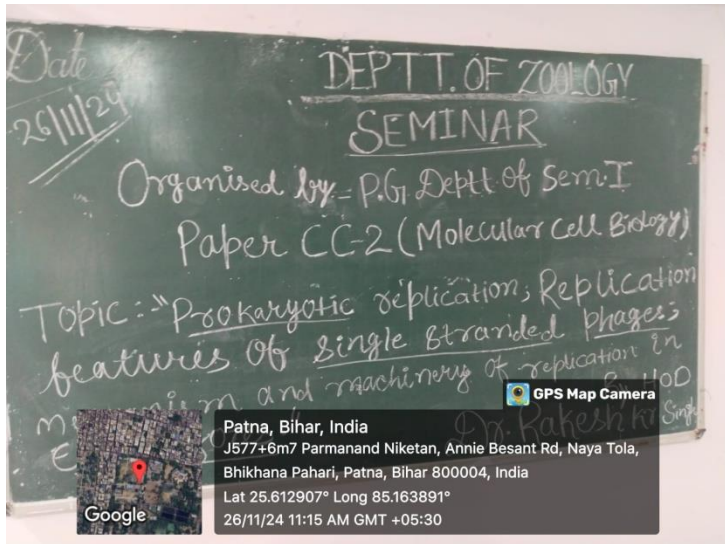 Date
26/11/24
DEPTT. OF ZOOLOGY
SEMINAR
Organised by - P.G. Deptt of Sem. I
Paper CC-2 (Molecular Cell Biology)
Topic :- "Prokaryotic replication, Replication
features of single stranded phages,
and machinery of replication in
HOD
Dr. Rakesh Kr Singh
GPS Map Camera
Google
Patna, Bihar, India
J577+6m7 Parmanand Niketan, Annie Besant Rd, Naya Tola,
Bhikhana Pahari, Patna, Bihar 800004, India
Lat 25.612907° Long 85.163891°
26/11/24 11:15 AM GMT +05:30